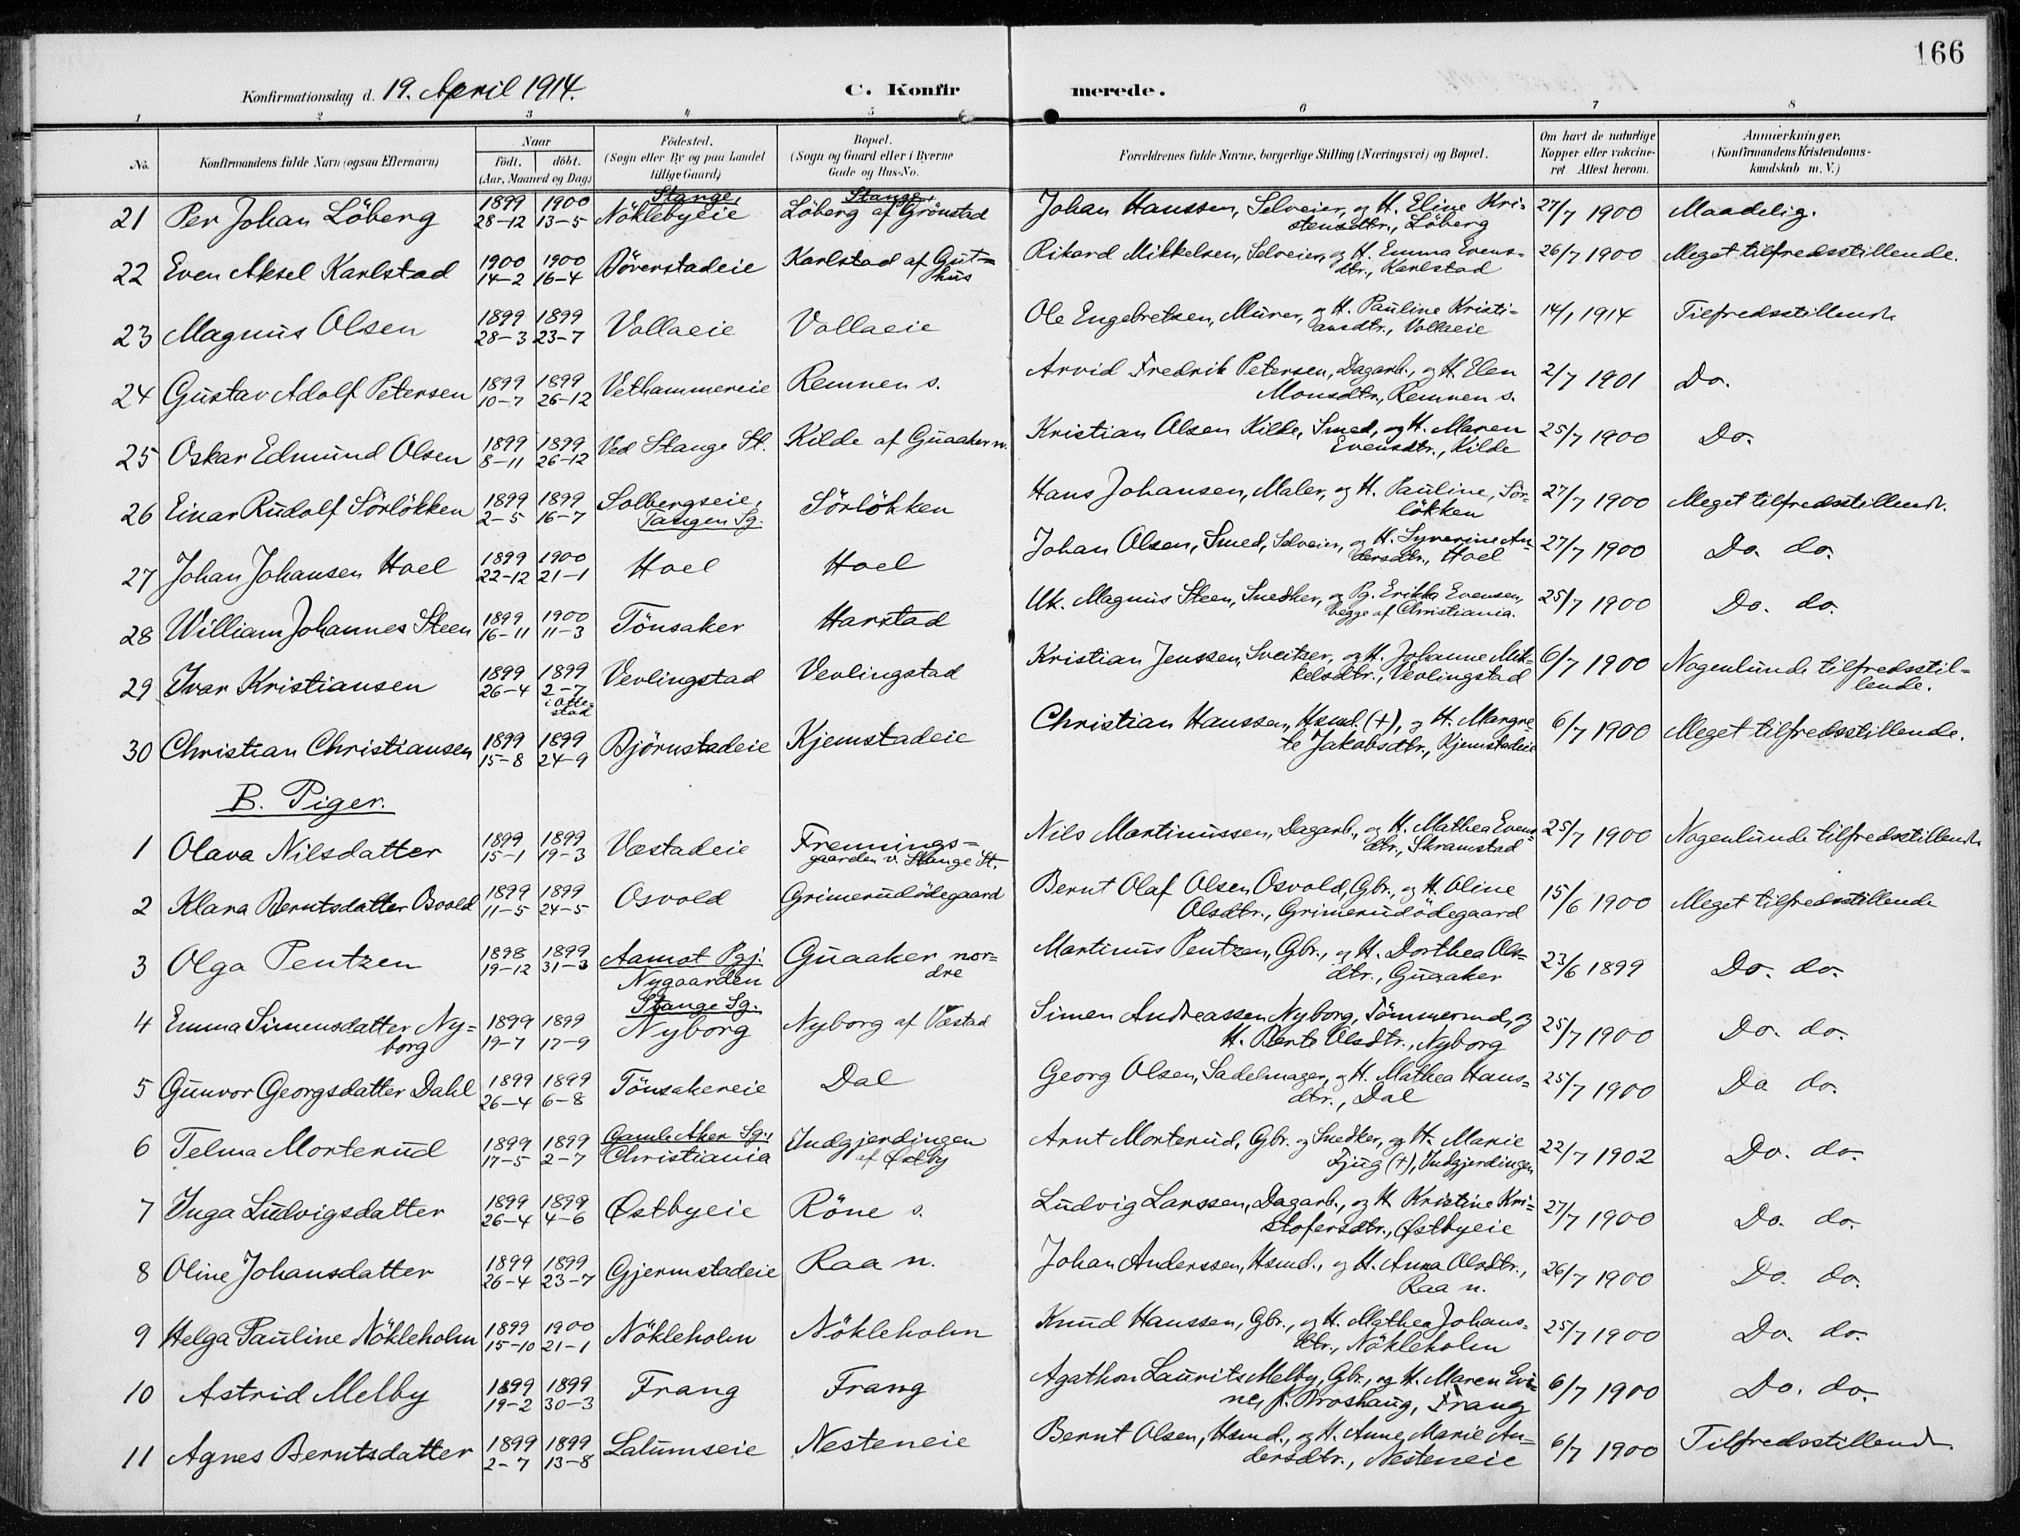 166
Konfirmationsdag d. 19. April 1914.
C. Konfirmerede.
1 2 3 4 5 6 7 8
No.
Konfirmandens fulde Navn (ogsaa Efternavn)
Naar
födt. döbt.
(Aar, Maaned og Dag)
Födested.
(Sogn eller By og paa Landet
tillige Gaard)
Bopæl.
(Sogn og Gaard eller i Byerne
Gade og Hus-No.
Forældrenes fulde Navne, borgerlige Stilling (Næringsvei) og Bopæl.
Om havt de naturlige
Kopper eller vakcine-
ret Attest herom.
Anmærkninger.
(Konfirmandens Kristendoms-
kundskab m. V.)
21 Per Johan Löberg 1899 28-12 1900 13-5 Stange, Nöklebyeie Stange, Löberg af Grönstad Johan Hanssen, Selveier, og H. Eline Kri-
stensdtr., Löberg 27/7 1900 Maadelig.
22 Even Aksel Karlstad 1900 14-2 1900 16-4 Döverstadeie Karlstad af Gut-
hus Rikard Mikkelsen, Selveier, og H. Emma Evens-
dtr., Karlstad 26/7 1900 Meget tilfredsstillende.
23 Magnus Olsen 1899 28-3 1899 23-7 Vollaeie Vollaeie Ole Engebretsen, Murer, og H. Pauline Kristi-
ansdtr., Vollaeie 14/1 1914 Tilfredsstillende
24 Gustav Adolf Petersen 1899 10-7 1899 26-12 Vethammereie Remmen s. Arvid Fredrik Petersen, Dagarb., og H. Elen
Monsdtr., Remmen s. 2/7 1901 Do.
25 Oskar Edmund Olsen 1899 8-11 1899 26-12 Ved Stange St. Kilde af Guaaker n. Kristian Olsen Kilde, Smed, og H. Maren
Evensdtr., Kilde 25/7 1900 Do.
26 Einar Rudolf Sörlökken 1899 2-5 1899 16-7 Solbergseie,
Tangen Sg. Sörlökken Hans Johansen, Maler, og H. Pauline, Sör-
lökken 27/7 1900 Meget tilfredsstillende.
27 Johan Johansen Hoel 1899 22-12 1900 21-1 Hoel Hoel Johan Olsen, Smed, Selveier, og H. Syverine An-
dersdtr., Hoel 27/7 1900 Do. do.
28 William Johannes Steen 1899 16-11 1900 11-3 Tönsaker Harstad Uk. Magnus Steen, Snedker, og Pg. Erikka Evensen,
begge af Christiania. 25/7 1900 Do. do.
29 Ivar Kristiansen 1899 26-4 1899 2-7 i Otte-
stad Vevlingstad Vevlingstad Kristian Jenssen, Sveitser, og H. Johanne Mik-
kelsdtr., Vevlingstad 6/7 1900 Nogenlunde tilfredsstil-
lende.
30 Christian Christiansen 1899 15-8 1899 24-9 Björnstadeie Kjemstadeie Christian Hanssen, Hsmd. (+), og H. Margre-
te Jakobsdtr., Kjemstadeie 6/7 1900 Meget tilfredsstillende.
B. Piger.
1 Olava Nilsdatter 1899 15-1 1899 19-3 Væstadeie Frennings-
gaarden v. Stange St. Nils Martinussen, Dagarb., og H. Mathea Evens-
dtr., Skramstad 25/7 1900 Nogenlunde tilfredsstillende
2 Klara Berntsdatter Osvold 1899 11-5 1899 24-5 Osvold Grimerudödegaard Bernt Olaf Olsen Osvold, Gbr., og H. Oline
Olsdtr., Grimerudödegaard 15/6 1900 Meget tilfredsstillende
3 Olga Pentzen 1898 19-12 1899 31-3 Aamot Pgj.
Nygaarden Guaaker nor-
dre Martinus Pentzen, Gbr., og H. Dorthea Ols-
dtr., Guaaker 23/6 1899 Do. do.
4 Emma Simensdatter Ny-
borg 1899 19-7 1899 17-9 Stange Sg.
Nyborg Nyborg af Væstad Simen Andreassen Nyborg, Tömmermd., og
H. Berte Olsdtr., Nyborg 25/7 1900 Do. do.
5 Gunvor Georgsdatter Dahl 1899 26-4 1899 6-8 Tönsakereie Dal Georg Olsen, Sadelmager, og H. Mathea Hans-
dtr., Dal 25/7 1900 Do do.
6 Telma Morterud 1899 17-5 1899 2-7 Gamle Aker Sg.,
Christiania Indgjerdingen
af Østby Arnt Morterud, Gbr. og Snedker, og H. Marie
Fjug (+), Indgjerdingen 22/7 1902 Do. do.
7 Inga Ludvigsdatter 1899 26-4 1899 4-6 Østbyeie Röne s. Ludvig Larssen, Dagarb., og H. Kristine Kri-
stofersdtr., Østbyeie 27/7 1900 Do. do.
8 Oline Johansdatter 1899 26-4 1899 23-7 Gjermstadeie Raa n. Johan Anderssen, Hsmd., og H. Anna Olsdtr.,
Raa n. 26/7 1900 Do. do.
9 Helga Pauline Nökleholm 1899 15-10 1900 21-1 Nökleholm Nökleholm Knud Hanssen, Gbr., og H. Mathea Johans-
dtr., Nökleholm 25/7 1900 Do. do.
10 Astrid Melby 1899 19-2 1899 30-3 Frang Frang Agathon Laurits Melby, Gbr., og H. Maren Evi-
ne, f. Broshaug, Frang 6/7 1900 Do. do.
11 Agnes Berntsdatter 1899 2-7 1899 13-8 Lalumseie Nesteneie Bernt Olsen, Hsmd., og H. Anne Marie An-
dersdtr., Nesteneie 6/7 1900 Tilfredsstillende.